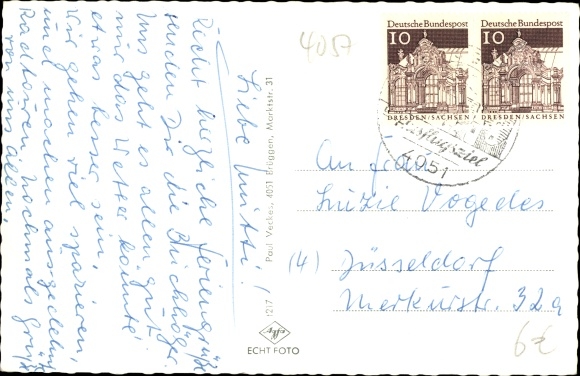 4057
Liebe Mutti!
Recht herzliche Feriengrüße
senden Dir die
Uns geht es allen gut,
nur das Wetter könnte
etwas besser sein.
Wir gehen viel spazieren,
und machen ausgedehnte
Radtouren. Nochmals Grüße
von allen
Paul Veckes, 4051 Brüggen, Marktstr. 31
1217
agfa
ECHT FOTO
Deutsche Bundespost
10
DRESDEN/SACHSEN
Deutsche Bundespost
10
DRESDEN/SACHSEN
Ausflugsziel
4051
An Frau
Luzie Vogedes
(4) Düsseldorf
Merkurstr. 32a
6€